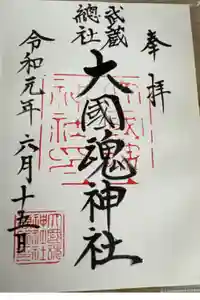 奉拝
武蔵
總社
大國魂神社
令和元年六月十五日